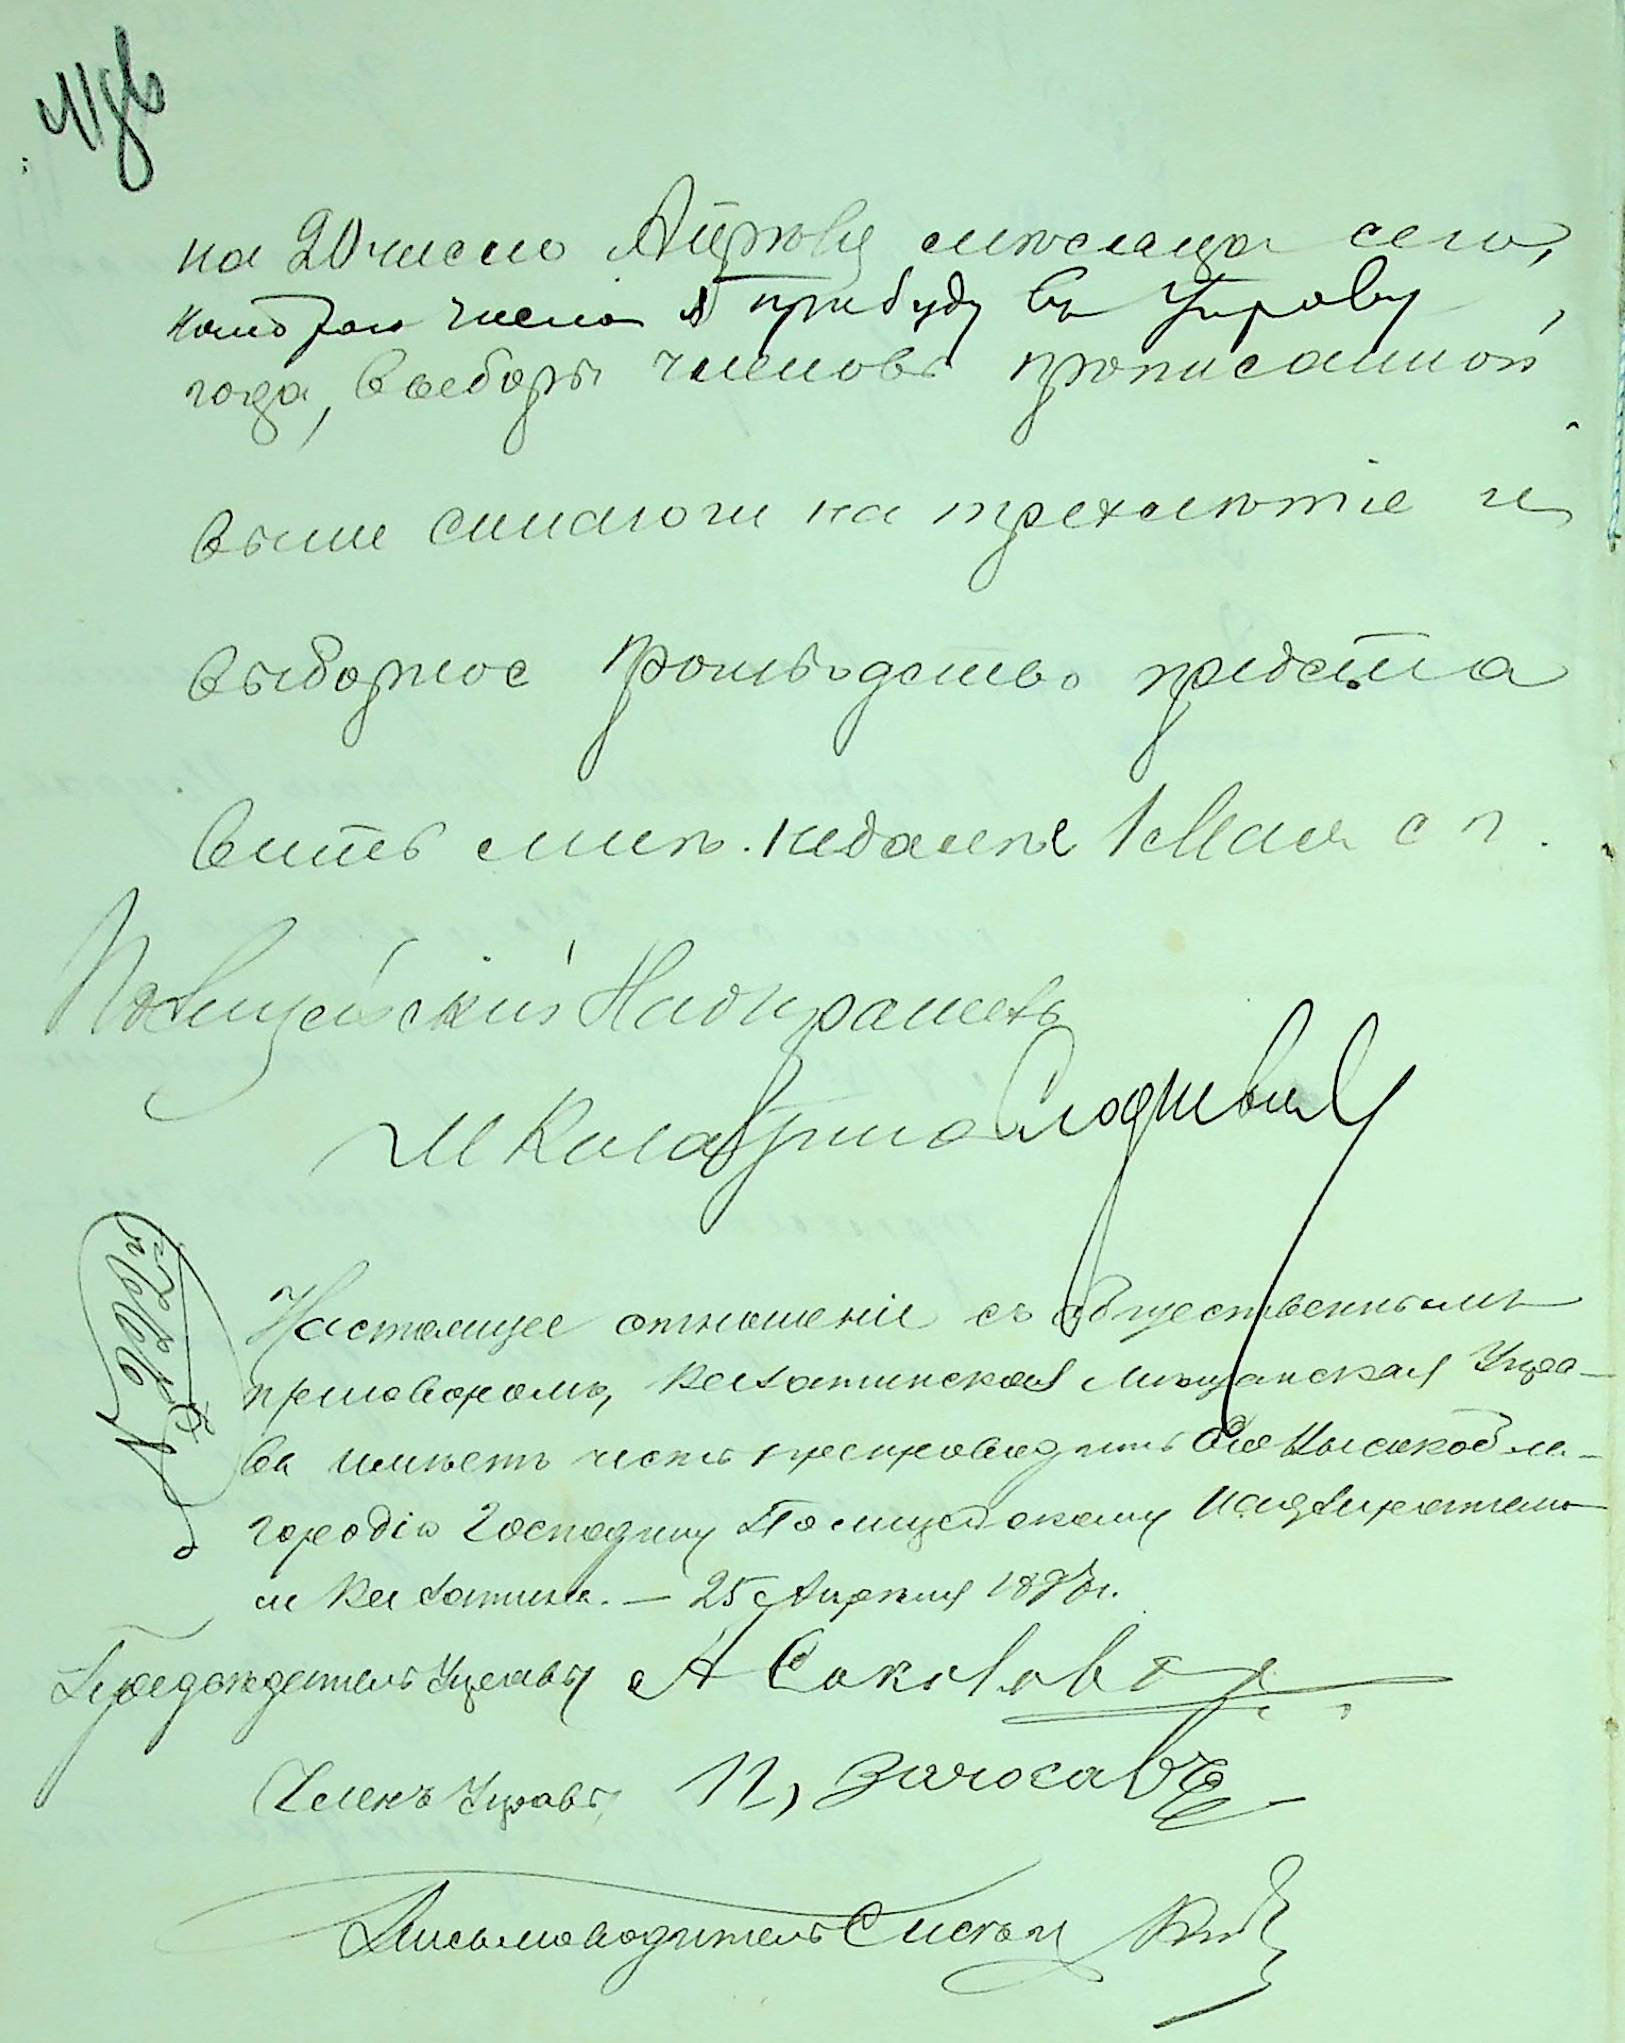 на 20 число Апрѣля мѣсяца сего,
которого числа я прибуду въ Управу,
года, выборъ членовъ прописанной
выше синагоги на трехлѣтіе и
выборное производство предста
вить мнѣ. недалѣе 1 Мая с г.
Полицейскій Надзиратель
м Калабрина
Настоящее отношеніе съ общественнымъ
приговоромъ, мѣщанская Упра-
ва имѣетъ честь препроводить Его Высокобла-
городію Господину Полицейскому Надзирателю
м. — 25 Апрѣля 189 г.
Предсѣдатель Управы А Соколов
Членъ Управы П,
Письмоводитель